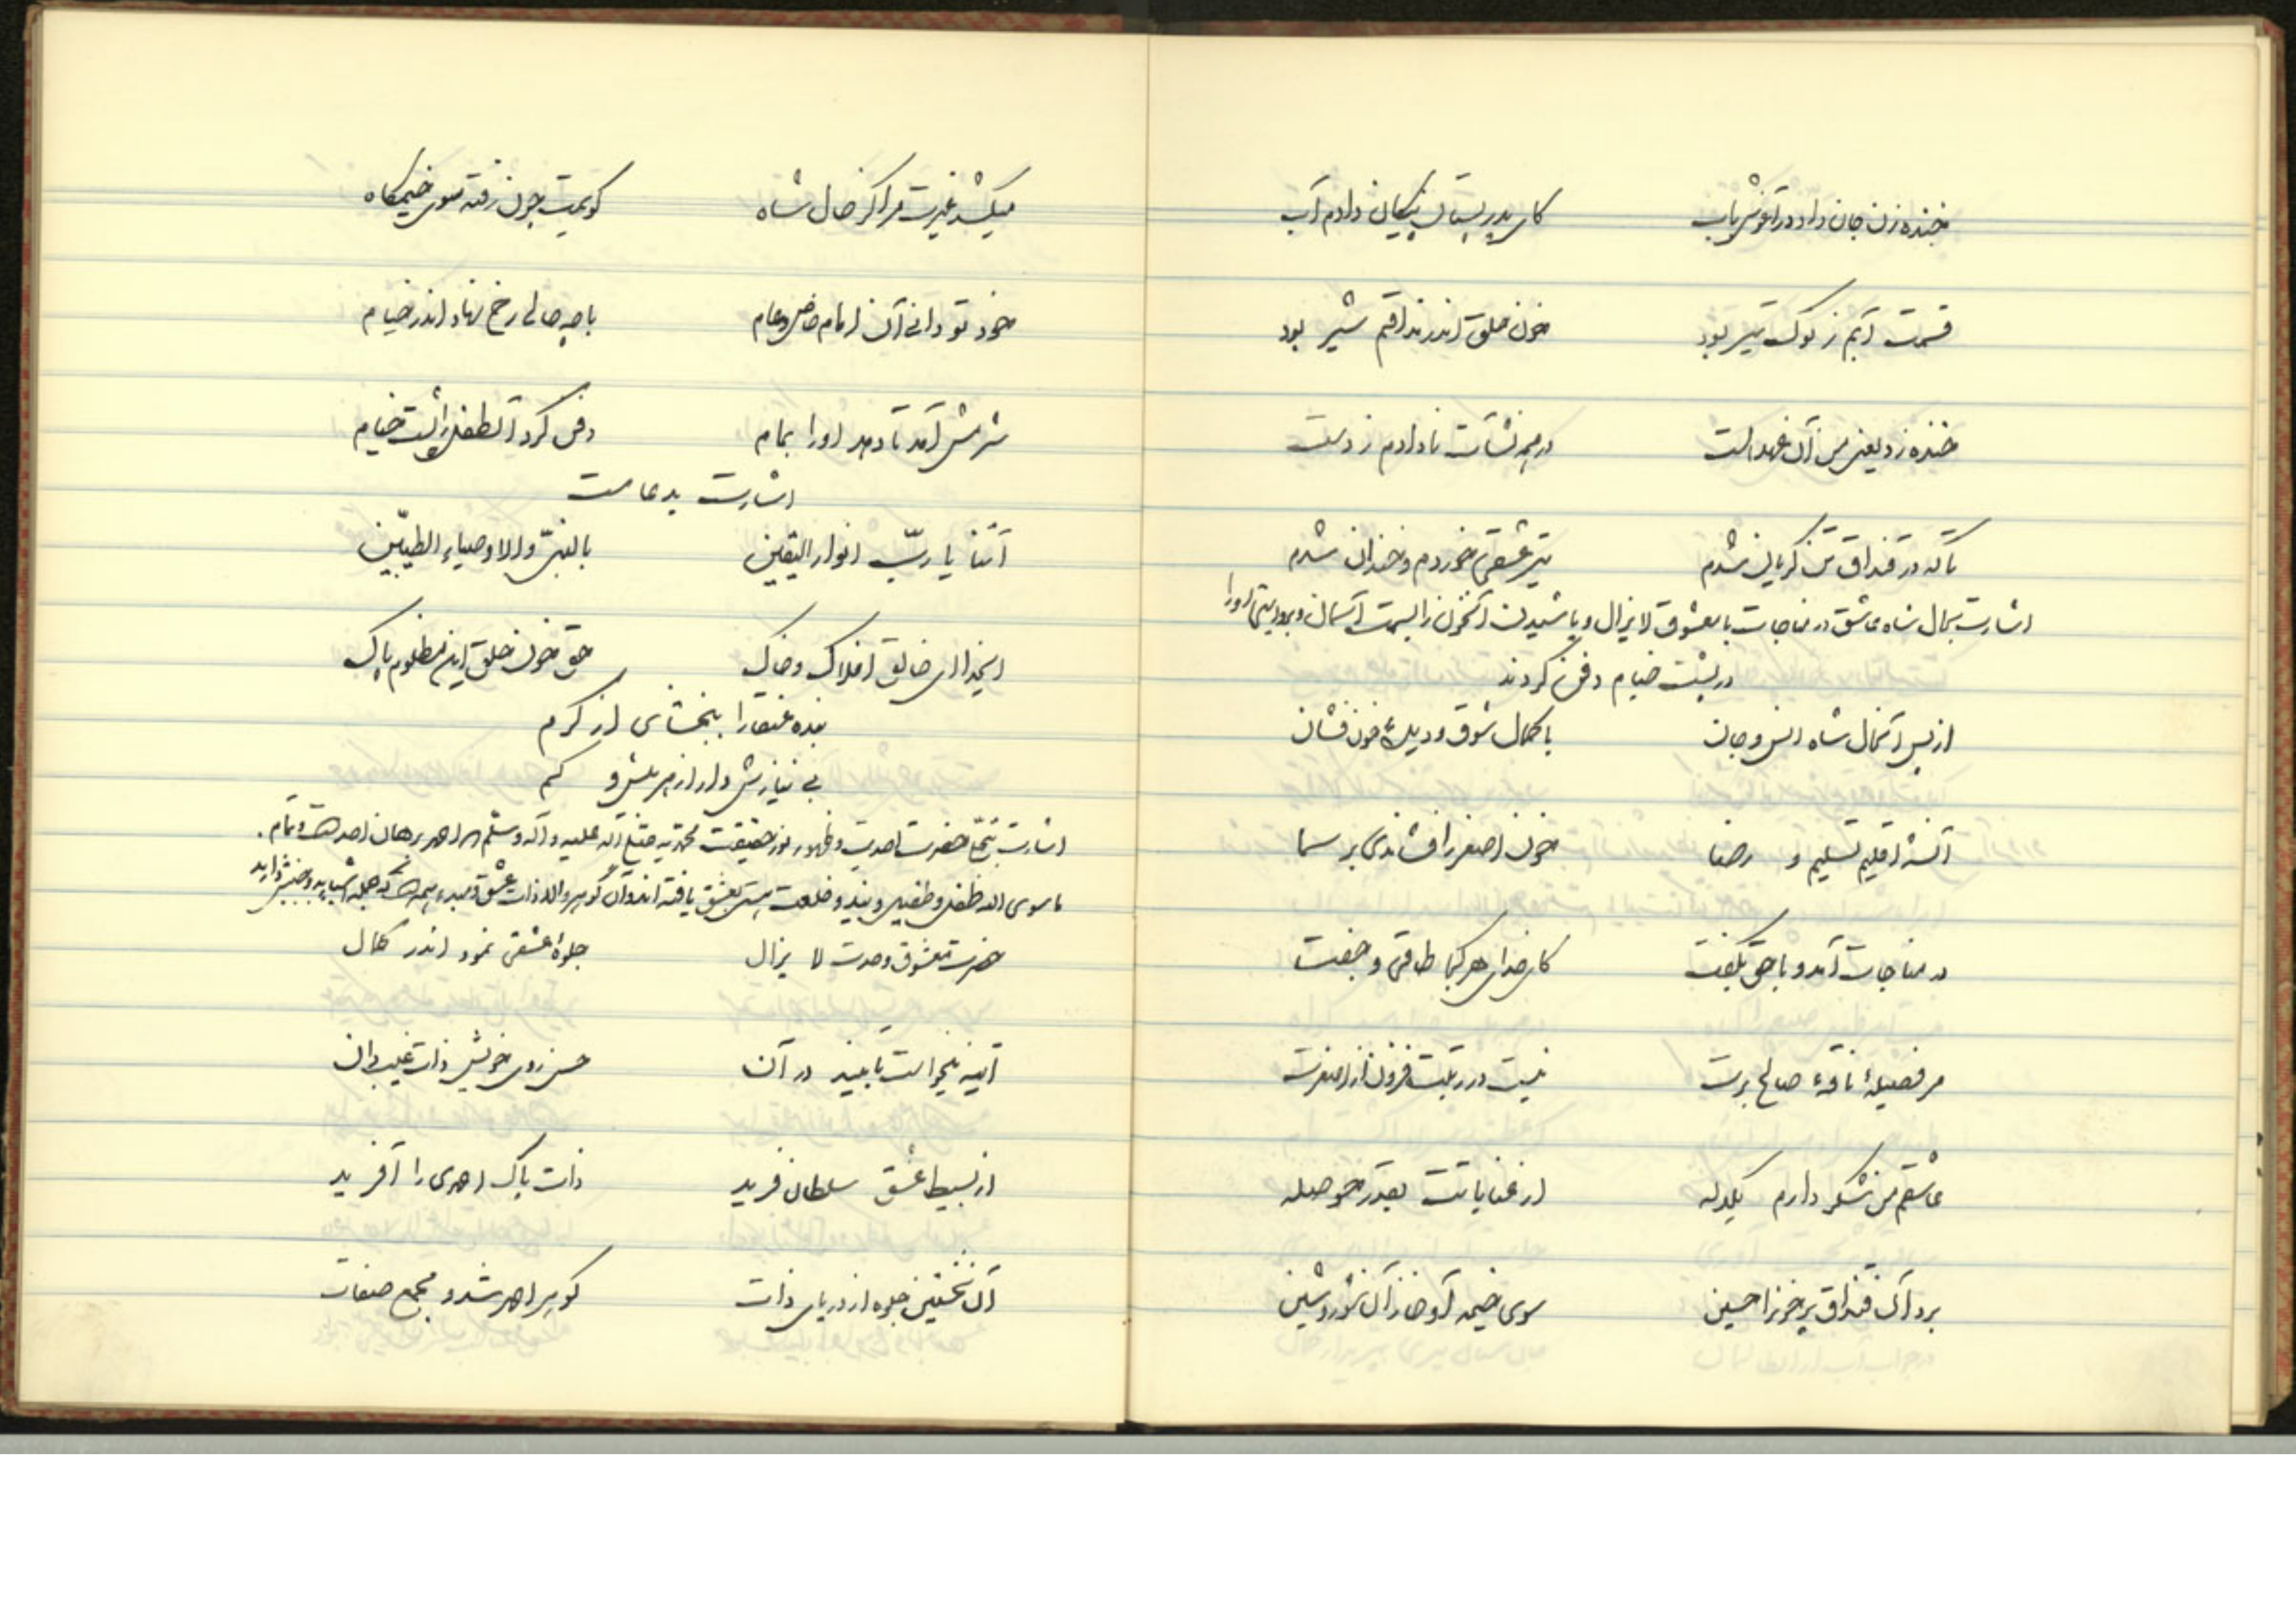 خنده زن جان داد در آغوش باب کای پدر پستان پیکان داد آب
قسمت آبم ز نوک تیر بود خون حلق اندر مذاقم شیر بود
خنده زد یعنی من آن عهد الست در چه نشأت نادادم ز دست
تا که در قنداق تن گریان نشدم تیر عشقی خوردم و خندان شدم
اشارت بحال شاه عاشق در مناجات با معشوق لایزال و پاشیدن آنخون را بسمت آسمان و بروایتی او را
در پشت خیام دفن کردند
از پس آنحال شاه انس و جان با کمال شوق و دیدهٔ خون فشان
آنشه اقلیم تسلیم و رضا خون اصغر را فشاندی بر سما
در مناجات آمد و با حق بگفت کای خدای هر کجا طاقی و جفت
مر فصیلهٔ ناقهٔ صالح برت نیست در رتبت فزون از اصغرت
عاشقم من شکر دارم یکدله از عنایاتت بقدر حوصله
برد آن قنداق پر خون را حسین سوی خیمه آن شور و شین
میکشد غیرت مرا کز حال شاه گویمت چون رفته سوی خیمگاه
خود تو دانی آن امام خاص و عام با چه حالی رخ نهاد اندر خیام
شرمش آمد تا دهد او را بمام دفن کرد آنطفل را پشت خیام
اشارت بدعا ست
آتنا یا ربّ انوار الیقین بالنبیّ والاوصیاء الطیّبین
ایخدا ای خالق افلاک و خاک حق خون حلق این مظلوم پاک
بنده عنقا را ببخشای از کرم
بی نیازش دار از هر بیش و کم
اشارت بتجلّی حضرت احدیت و ظهور نور حقیقت محمّدیه صلی الله علیه و آله و سلّم احمد برهان احد است و تمام.
ماسوی الله طفل و طفیل وید و خلعت هستی بعشق یافته اند و آن گوهر والا ذات عشق و مبدء همه است که جمله
حضرت معشوق وحدت لا یزال جلوهٔ عشقی نمود اندر کمال
آینه میخواست تا بیند در آن حسن روی خویش ذات غیب دان
از بسیط عشق سلطان فرید ذات پاک احمدی را آفرید
آن نخستین جلوه از دریای ذات گوهر احمد شد و مجمع صفات